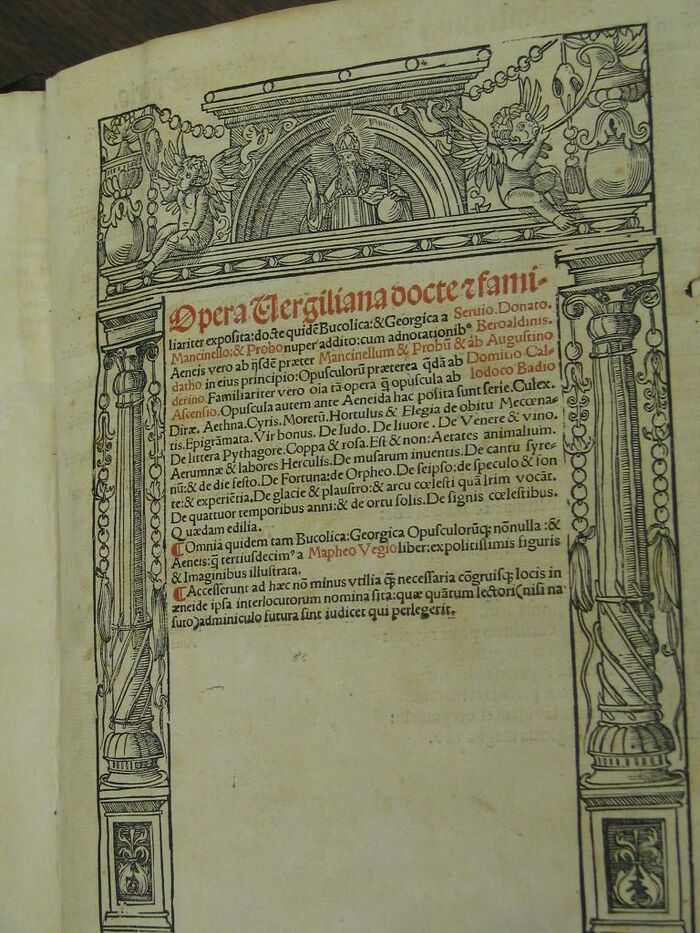 Opera Uergiliana docte ⁊ fami-
liariter exposita: docte quidē Bucolica: & Georgica a Seruio. Donato.
Mancinello: & Probo nuper addito: cum adnotationibꝰ Beroaldinis.
Aeneis vero ab ijsdē præter Mancinellum & Probū & ab Augustino
datho in eius principio: Opusculorū præterea q̄dā ab Domitio Cal-
derino. Familiariter vero oīa tā opera q̄ opuscula ab Iodoco Badio
Ascensio. Opuscula autem ante Aeneida hac posita sunt serie. Culex.
Diræ. Aethna. Cyris. Moretū. Hortulus & Elegia de obitu Mecœna-
tis. Epigrāmata. Vir bonus. De ludo. De liuore. De Venere & vino.
De littera Pythagore. Coppa & rosa. Est & non: Aetates animalium.
Aerumnæ & labores Herculis. De musarum inuentis. De cantu syre-
nū: & de die festo. De Fortuna: de Orpheo. De seipso: de speculo & fon
te: & experiētia. De glacie & plaustro: & arcu cœlesti quā Irim vocāt.
De quattuor temporibus anni: & de ortu solis. De signis cœlestibus.
Quædam edilia.
¶ Omnia quidem tam Bucolica: Georgica Opusculorūq; nōnulla: &
Aeneis: q̄ tertiusdecimꝰ a Mapheo Vegio liber: expolitissimis figuris
& Imaginibus illustrata.
¶ Accesserunt ad hæc nō minus vtilia q̄ necessaria cōgruisq; locis in
æneide ipsa interlocutorum nomina sita: quæ quātum lectori (nisi na
suto) adminiculo futura sint iudicet qui perlegerit.